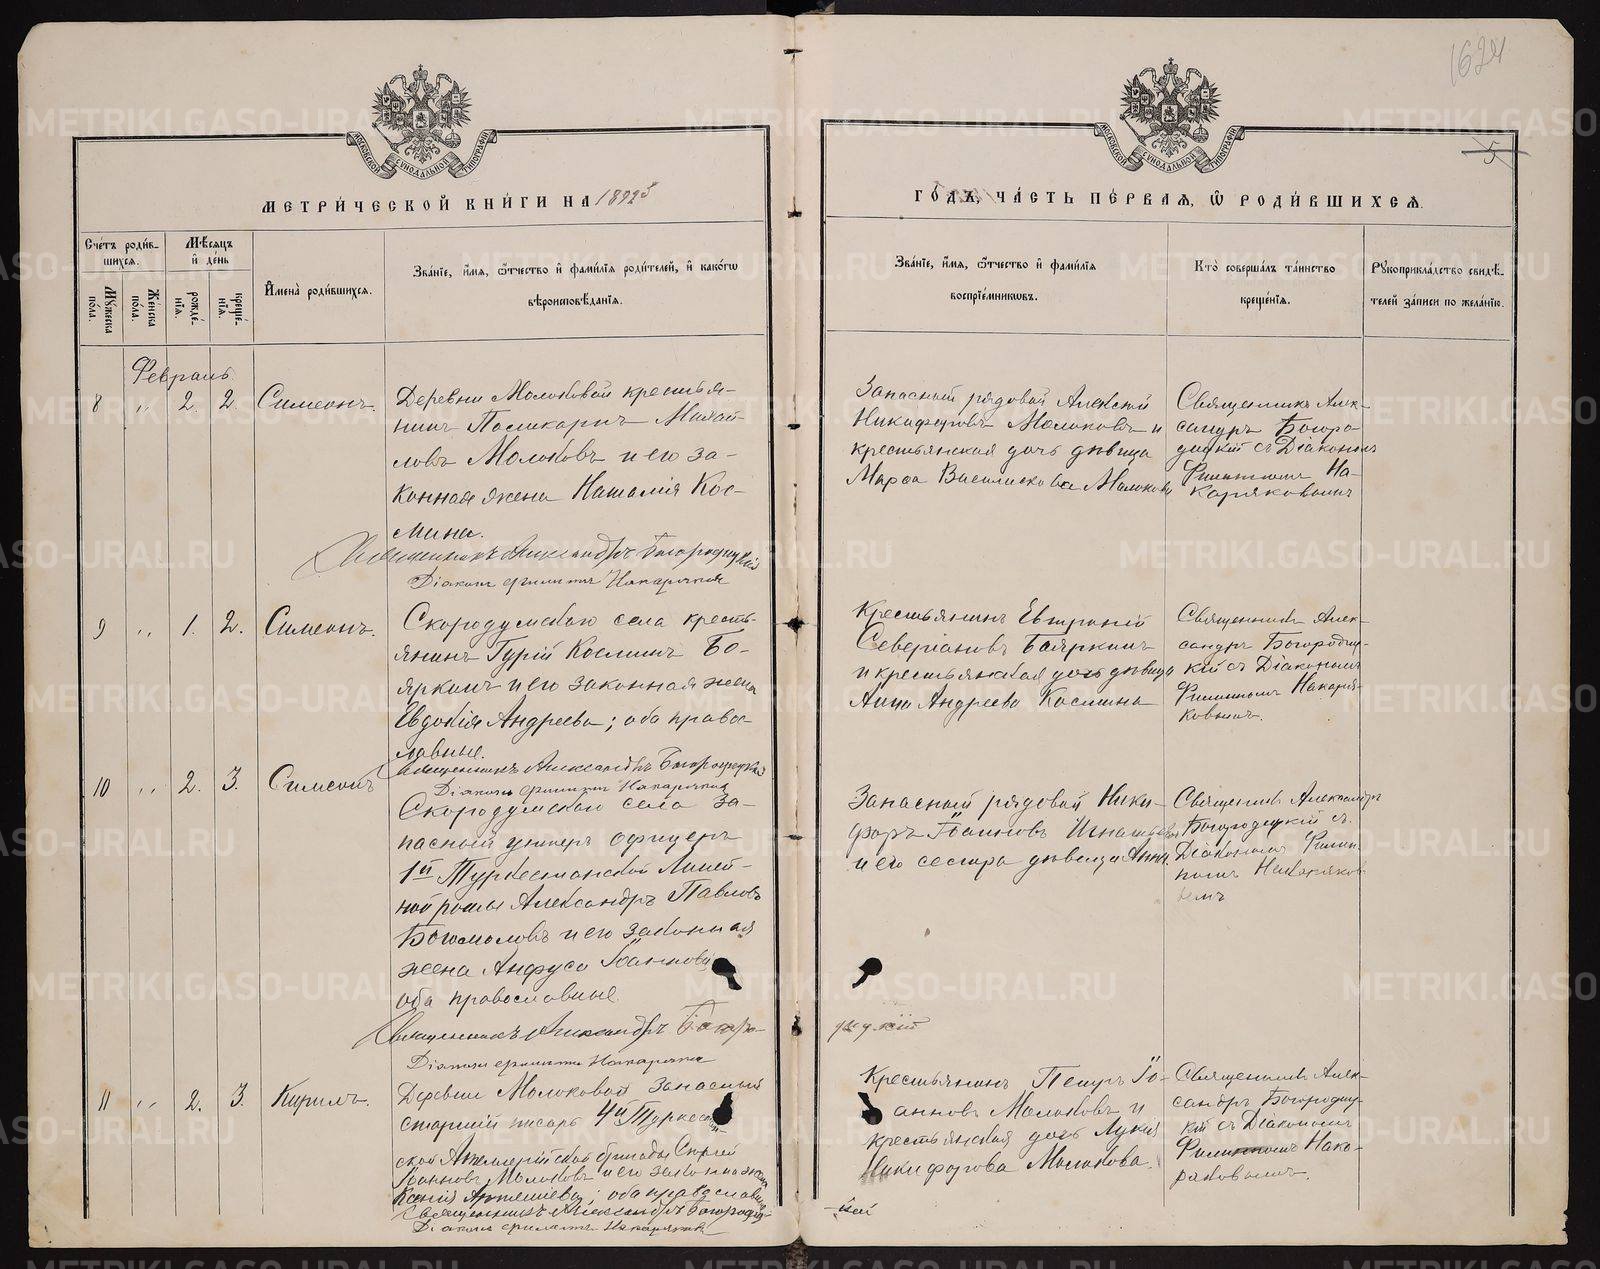 1624
5
МОСКОВСКОЙ СѴНОДАЛЬНОЙ ТИПОГРАФІИ
МОСКОВСКОЙ СѴНОДАЛЬНОЙ ТИПОГРАФІИ
МЕТРИ́ЧЕСКОЙ КНИ́ГИ НА 1895
ГО́ДЪ, ЧА́СТЬ ПЕ́РВАѦ, Ѡ҆ РОДИ́ВШИХСѦ.
Сче́тъ роди́в-
шихсѧ.
Мꙋ́жеска по́ла.
Же́нска по́ла.
Мѣ́сѧцъ
и҆ де́нь
рожде́нїѧ.
креще́нїѧ.
И҆мена̀ роди́вшихсѧ.
Зва́нїе, и҆́мѧ, ѻ҆́тчество и҆ фами́лїѧ роди́телей, и҆ како́гѡ
вѣроисповѣ́данїѧ.
Зва́нїе, и҆́мѧ, ѻ҆́тчество и҆ фами́лїѧ
воспрїе́мникѡвъ.
Кто̀ соверша́лъ та́инство
креще́нїѧ.
Рꙋкоприкла́дство свидѣ́-
телей за́писи по жела́нїю.
Февраль
8 " 2. 2. Симеонъ.
Деревни Молоковой крестья-
нинъ Поликарпъ Михай-
ловъ Молоковъ и его за-
конная жена Наталія Кос-
мина.
Священникъ Александръ Богородицкій
Діаконъ Филиппъ Накаряковъ
Запасный рядовой Алексій
Никифоровъ Молоковъ и
крестьянская дочь дѣвица
Марѳа Василискова Молокова
Священникъ Алек-
сандръ Богоро-
дицкій съ Діакономъ
Филиппомъ На-
каряковымъ
9 " 1. 2. Симеонъ.
Скородумскаго села кресть-
янинъ Гурій Косминъ Бо-
яркинъ и его законная жена
Евдокія Андреева; оба право-
славные.
Священникъ Александръ Богородицкій
Діаконъ Филиппъ Накаряковъ
Крестьянинъ Евтропій
Северіановъ Бояркинъ
и крестьянская дочь дѣвица
Анна Андреева Космина
Священникъ Алек-
сандръ Богородиц-
кій съ Діакономъ
Филиппомъ Накаря-
ковымъ.
10 " 2. 3. Симеонъ
Скородумскаго села за-
пасный унтеръ офицеръ
1й Туркестанской Линей-
ной роты Александръ Павловъ
Богомоловъ и его законная
жена Анфуса Іоаннова
оба православные.
Священникъ Александръ Богоро-
дицкій
Діаконъ Филиппъ Накаряковъ
Запасный рядовой Ники-
форъ Іоанновъ Игнатьевъ
и его сестра дѣвица Анна.
Священникъ Александръ
Богородицкій съ
Діакономъ Филип-
помъ Накаряков-
ымъ
11 " 2. 3. Кирилъ.
Деревни Молоковой Запасный
старшій писарь 4й Туркестан-
ской Артиллерійской бригады Сергій
Іоанновъ Молоковъ и его законная жена
Ксенія Артеміева; оба православные
Священникъ Александръ Богородиц-
-кій
Діаконъ Филиппъ Накаряковъ
Крестьянинъ Петръ Іо-
анновъ Молоковъ и
крестьянская дочь Лукія
Никифорова Молокова.
Священникъ Алек-
сандръ Богородиц-
кій съ Діакономъ
Филиппомъ Нака-
ряковымъ.
METRIKI.GASO-URAL.RU